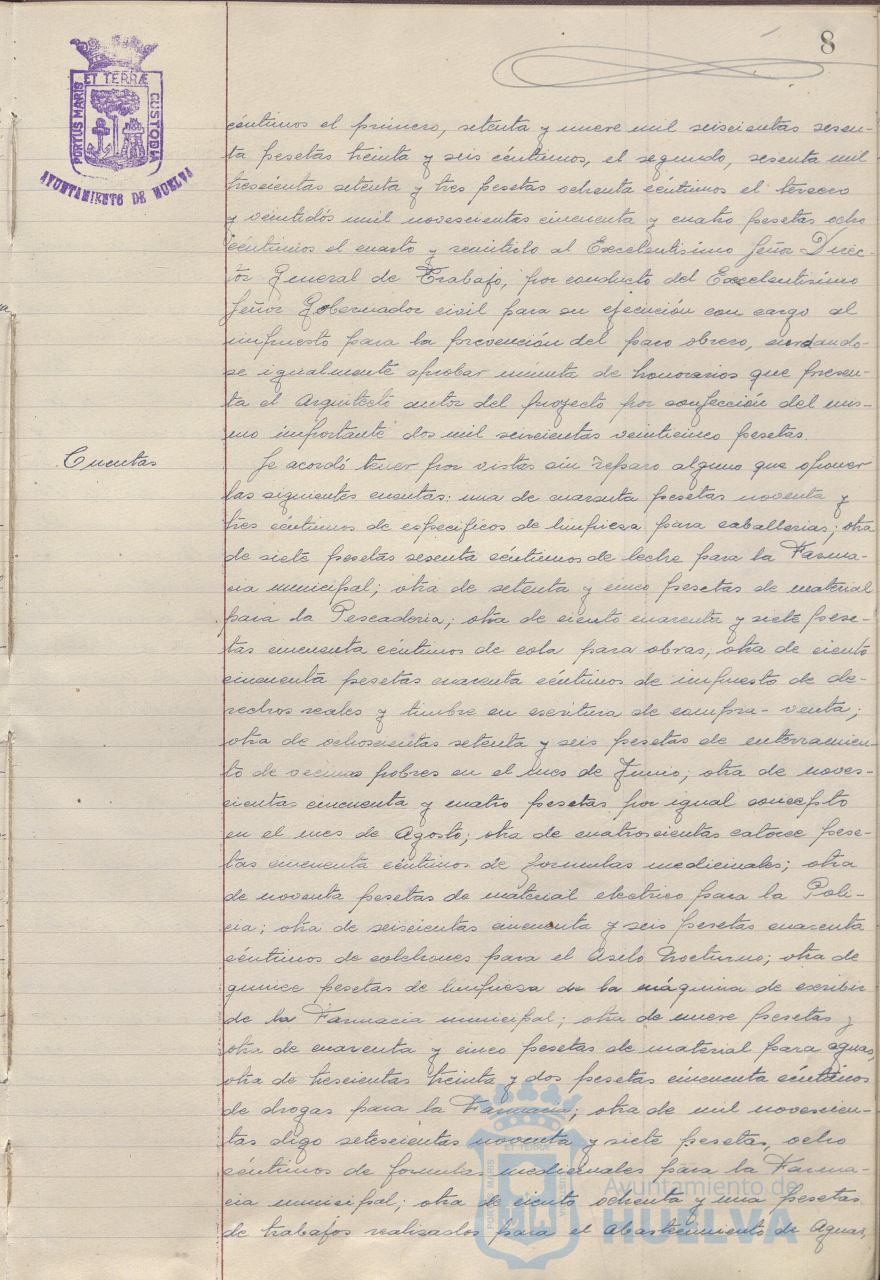 8
PORTUS MARIS
ET TERRÆ
CUSTODIA
AYUNTAMIENTO DE HUELVA
céntimos el primero, setenta y nueve mil seiscientas sesen-
ta pesetas treinta y seis céntimos, el segundo, sesenta mil
trescientas setenta y tres pesetas ochenta céntimos el tercero
y veintidós mil novescientas cincuenta y cuatro pesetas ocho
céntimos el cuarto y remitirlo al Excelentísimo Señor Direc-
tor General de Trabajo, por conducto del Excelentísimo
Señor Gobernador civil para su ejecución con cargo al
impuesto para la prevención del paro obrero, acordando-
se igualmente aprobar minuta de honorarios que presen-
ta el Arquitecto autor del proyecto por confección del mis-
mo importante dos mil seiscientas veinticinco pesetas.
Cuentas
Se acordó tener por vistas sin reparo alguno que oponer
las siguientes cuentas: una de cuarenta pesetas noventa y
tres céntimos de específicos de limpieza para caballerias; otra
de siete pesetas sesenta céntimos de leche para la Farma-
cia municipal; otra de setenta y cinco pesetas de material
para la Pescaderia; otra de ciento cuarenta y siete pese-
tas cincuenta céntimos de cola para obras, otra de ciento
cincuenta pesetas cuarenta céntimos de impuesto de de-
rechos reales y timbre en escritura de compra-venta;
otra de ochoscientas setenta y seis pesetas de enterramien-
to de vecinos pobres en el mes de Junio; otra de noves-
cientas cincuenta y cuatro pesetas por igual concepto
en el mes de Agosto; otra de cuatroscientas catorce pese-
tas cincuenta céntimos de formulas medicinales; otra
de noventa pesetas de material electrico para la Poli-
cia; otra de seiscientas cincuenta y seis pesetas cuarenta
céntimos de colchones para el Asilo Nocturno; otra de
quince pesetas de limpieza de la máquina de escribir
de la Farmacia municipal; otra de nueve pesetas y
otra de cuarenta y cinco pesetas de material para aguas,
otra de trescientas treinta y dos pesetas cincuenta céntimos
de drogas para la Farmacia; otra de mil novescien-
tas digo setescientas noventa y siete pesetas, ocho
céntimos de formulas medicinales para la Farma-
cia municipal; otra de ciento ochenta y una pesetas
de trabajos realizados para el abastecimiento de Aguas,
Ayuntamiento de
HUELVA